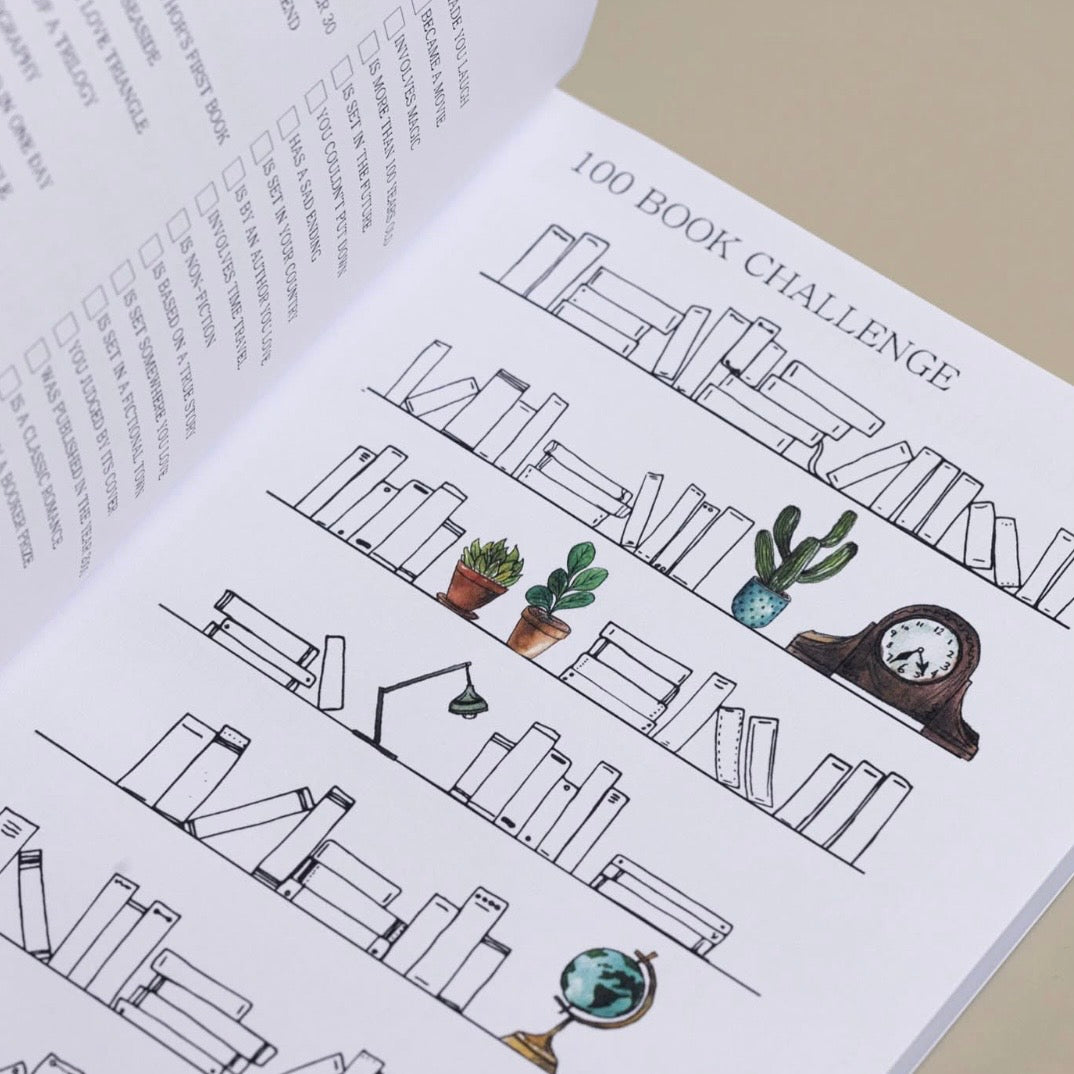 R 30
END
HOR'S FIRST BOOK
SEASIDE
LOVE TRIANGLE
OF A TRILOGY
GRAPHY
IN ONE DAY
ADE YOU LAUGH
BECAME A MOVIE
INVOLVES MAGIC
IS MORE THAN 100 YEARS OLD
IS SET IN THE FUTURE
YOU COULDN'T PUT DOWN
HAS A SAD ENDING
IS SET IN YOUR COUNTRY
IS BY AN AUTHOR YOU LOVE
INVOLVES TIME TRAVEL
IS NON-FICTION
IS BASED ON A TRUE STORY
IS SET SOMEWHERE YOU LOVE
IS SET IN A FICTIONAL TOWN
YOU JUDGED BY ITS COVER
WAS PUBLISHED IN THE YEAR
IS A CLASSIC ROMANCE
A BOOKER PRIZE
100 BOOK CHALLENGE